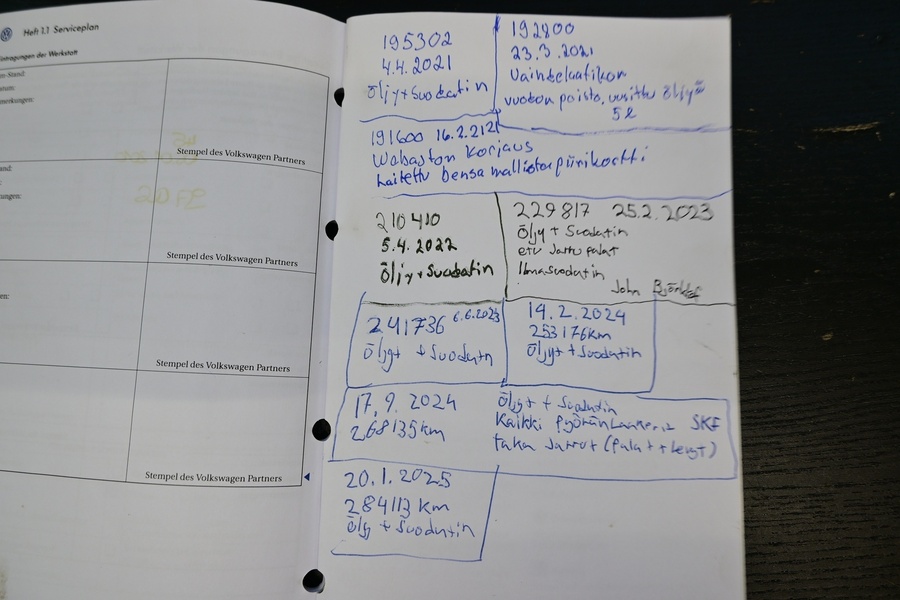 Heft 1.1 Serviceplan
Eintragungen der Werkstatt
Stempel des Volkswagen Partners
20 FE
Stempel des Volkswagen Partners
Stempel des Volkswagen Partners
Stempel des Volkswagen Partners
195302
4.4.2021
Öljy + Suodatin
192800
23.3.2021
Vaihdelaatikon
vuodon poisto, uusittu öljyä
5l
191600 16.2.2121
Webaston korjaus
Laitettu bensa mallista piirikortti
210410
5.4.2022
Öljy + Suodatin
229817 25.2.2023
Öljy + Suodatin
etu Jarru palat
Ilmasuodatin
John
241736 6.6.2023
Öljyt + Suodatin
14.2.2024
253176km
Öljyt + Suodatin
17.9.2024
268135km
Öljyt + Suodatin
Kaikki Pyöränlaakerit SKF
taka Jarrut (Palat + Levyt)
20.1.2025
284113 km
Öljy + Suodatin